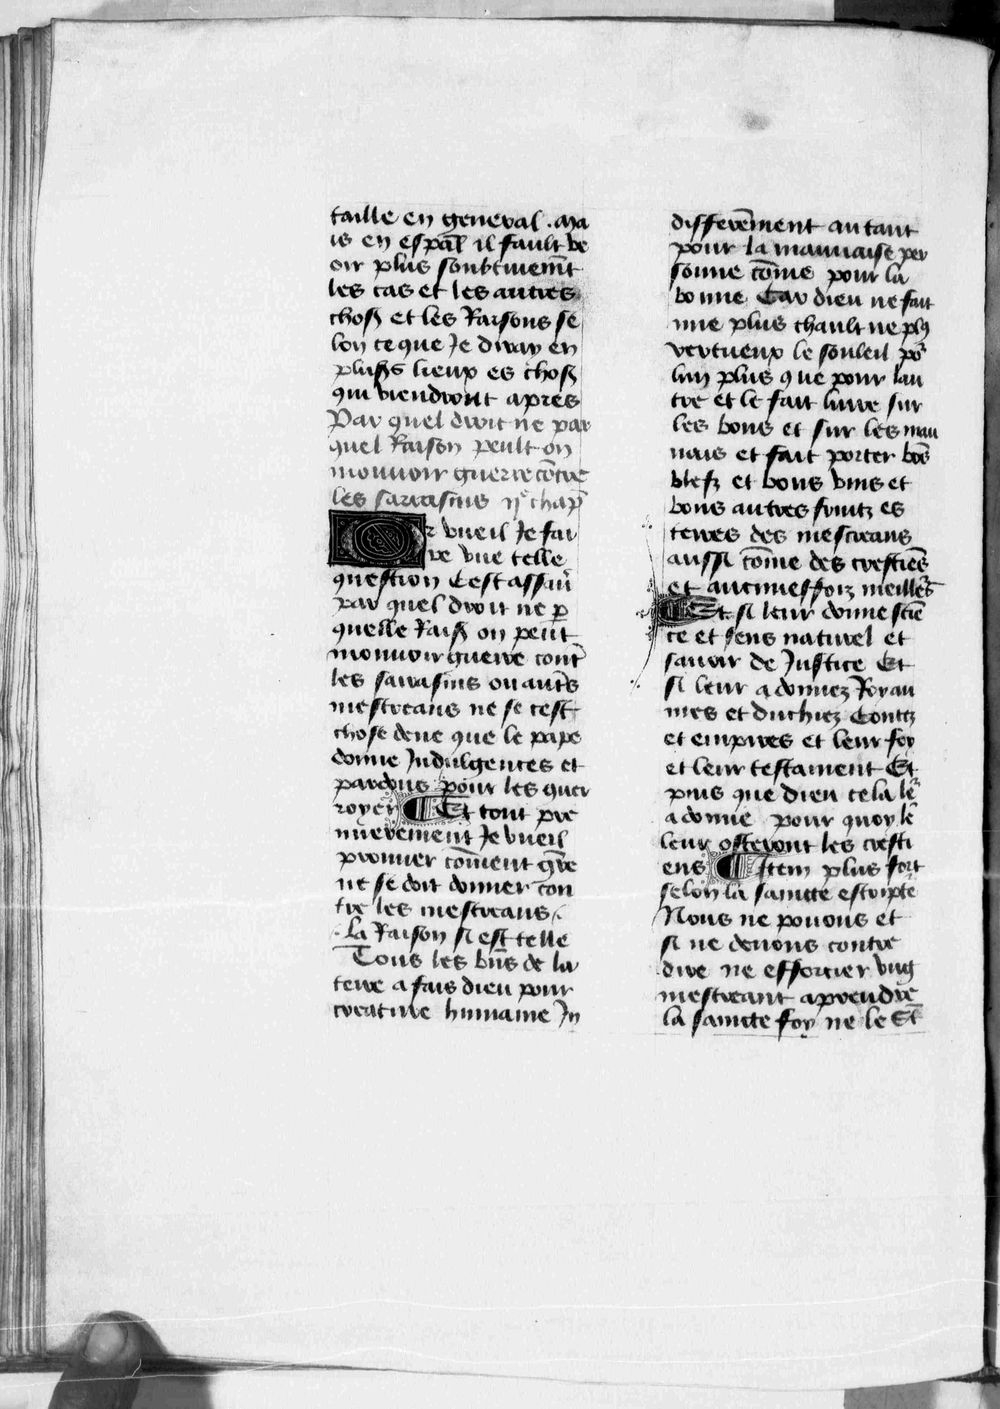 taille en general . Ma
is en esp̄al il fault ve
oir plus soubtivem̄t
les cas et les autres
chos̄ et les Raisons se
lon ce que Je diray en
plus̄s lieux es chos̄
qui viendront apres
Par quel droit ne par
quel Raison peult on
mouvoir guerre cōtre
les sarrasins ii͛ chap̄
Or vueil Je fai
re vne telle
question Cest assav̄
par quel droit ne p̱
quelle Rais̄ on peut
mouvoir guerre cont̄
les sarrasins ou aut̄s
mescreans ne se cest
chose deue que le pape
donne Indulgences et
pardons pour les guer
royer ¶ Et tout pre
mierement Je vueil
prouver cōment ḡre
ne se doit donner con
tre les mescreans
la Raison si est telle
Tous les bn̄s de la
terre a fais dieu pour
creature humaine In
differēment autant
pour la mauvaise per
sonne cōme pour la
bonne Car dieu ne fait
mie plus chault ne pl9
vertueux le souleil po͛
lun plus que pour lau
tre et le fait luire sur
les bons et sur les mau
vais et fait porter bōs
blefz et bons vins et
bons autres fruitz es
terres des mescreans
aussi cōme des crestiēs
et aucuneffoiz meille͛s
¶ Et si leur donne sciē
ce et sens naturel et
savoir de Justice Et
si leur a donnez Royau
mes et duchiez Contez
et empires et leur foy
et leur testament Et
puis que dieu cela le͛
a donne pour quoy le
leur osteront les cresti
ens ¶ Item plus fort
selon la saincte escript̄e
Nous ne povons et
si ne devons contre
dire ne efforcier vng
mescreant aprendre
la saincte foy ne le St̄